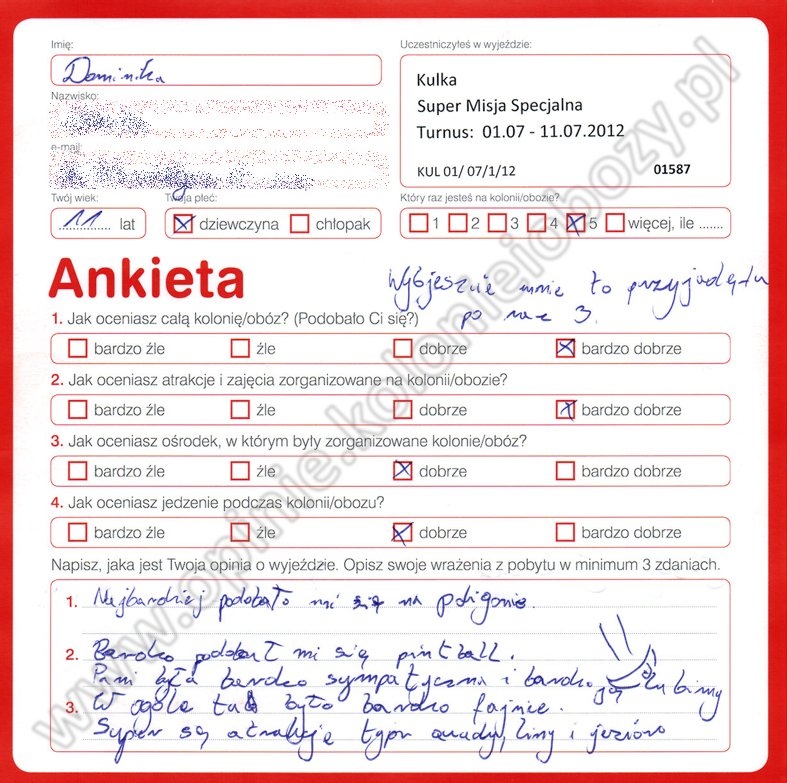 Imię:
Dominika
Uczestniczyłeś w wyjeździe:
Kulka
Super Misja Specjalna
Turnus: 01.07 - 11.07.2012
KUL 01/ 07/1/12 01587
Nazwisko:
e-mail:
Twój wiek:
11 lat
Twoja płeć:
dziewczyna chłopak
Który raz jesteś na kolonii/obozie?
1 2 3 4 5 więcej, ile .......
Ankieta
mnie to przyjadę tu
po raz 3.
1. Jak oceniasz całą kolonię/obóz? (Podobało Ci się?)
bardzo źle źle dobrze bardzo dobrze
2. Jak oceniasz atrakcje i zajęcia zorganizowane na kolonii/obozie?
bardzo źle źle dobrze bardzo dobrze
3. Jak oceniasz ośrodek, w którym były zorganizowane kolonie/obóz?
bardzo źle źle dobrze bardzo dobrze
4. Jak oceniasz jedzenie podczas kolonii/obozu?
bardzo źle źle dobrze bardzo dobrze
Napisz, jaka jest Twoja opinia o wyjeździe. Opisz swoje wrażenia z pobytu w minimum 3 zdaniach.
1. Najbardziej podobało mi się na poligonie.
2. Bardzo podobał mi się pintball.
Pani była bardzo sympatyczna i bardzo ją lubimy
3. W ogóle tu było bardzo fajnie.
Super są atrakcje typu quady, liny i jezioro
www.opinie.kolonieiobozy.pl